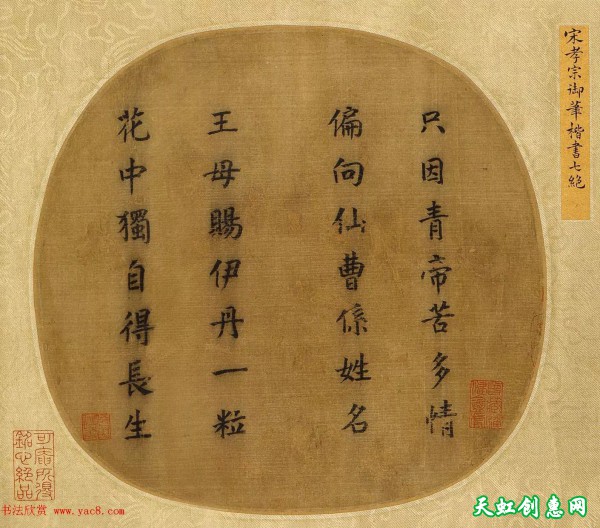 宋孝宗御筆楷書七絕
只因青帝苦多情
偏向仙曹係姓名
王母賜伊丹一粒
花中獨自得長生
書法欣賞 www.yac8.com
天虹创惠网